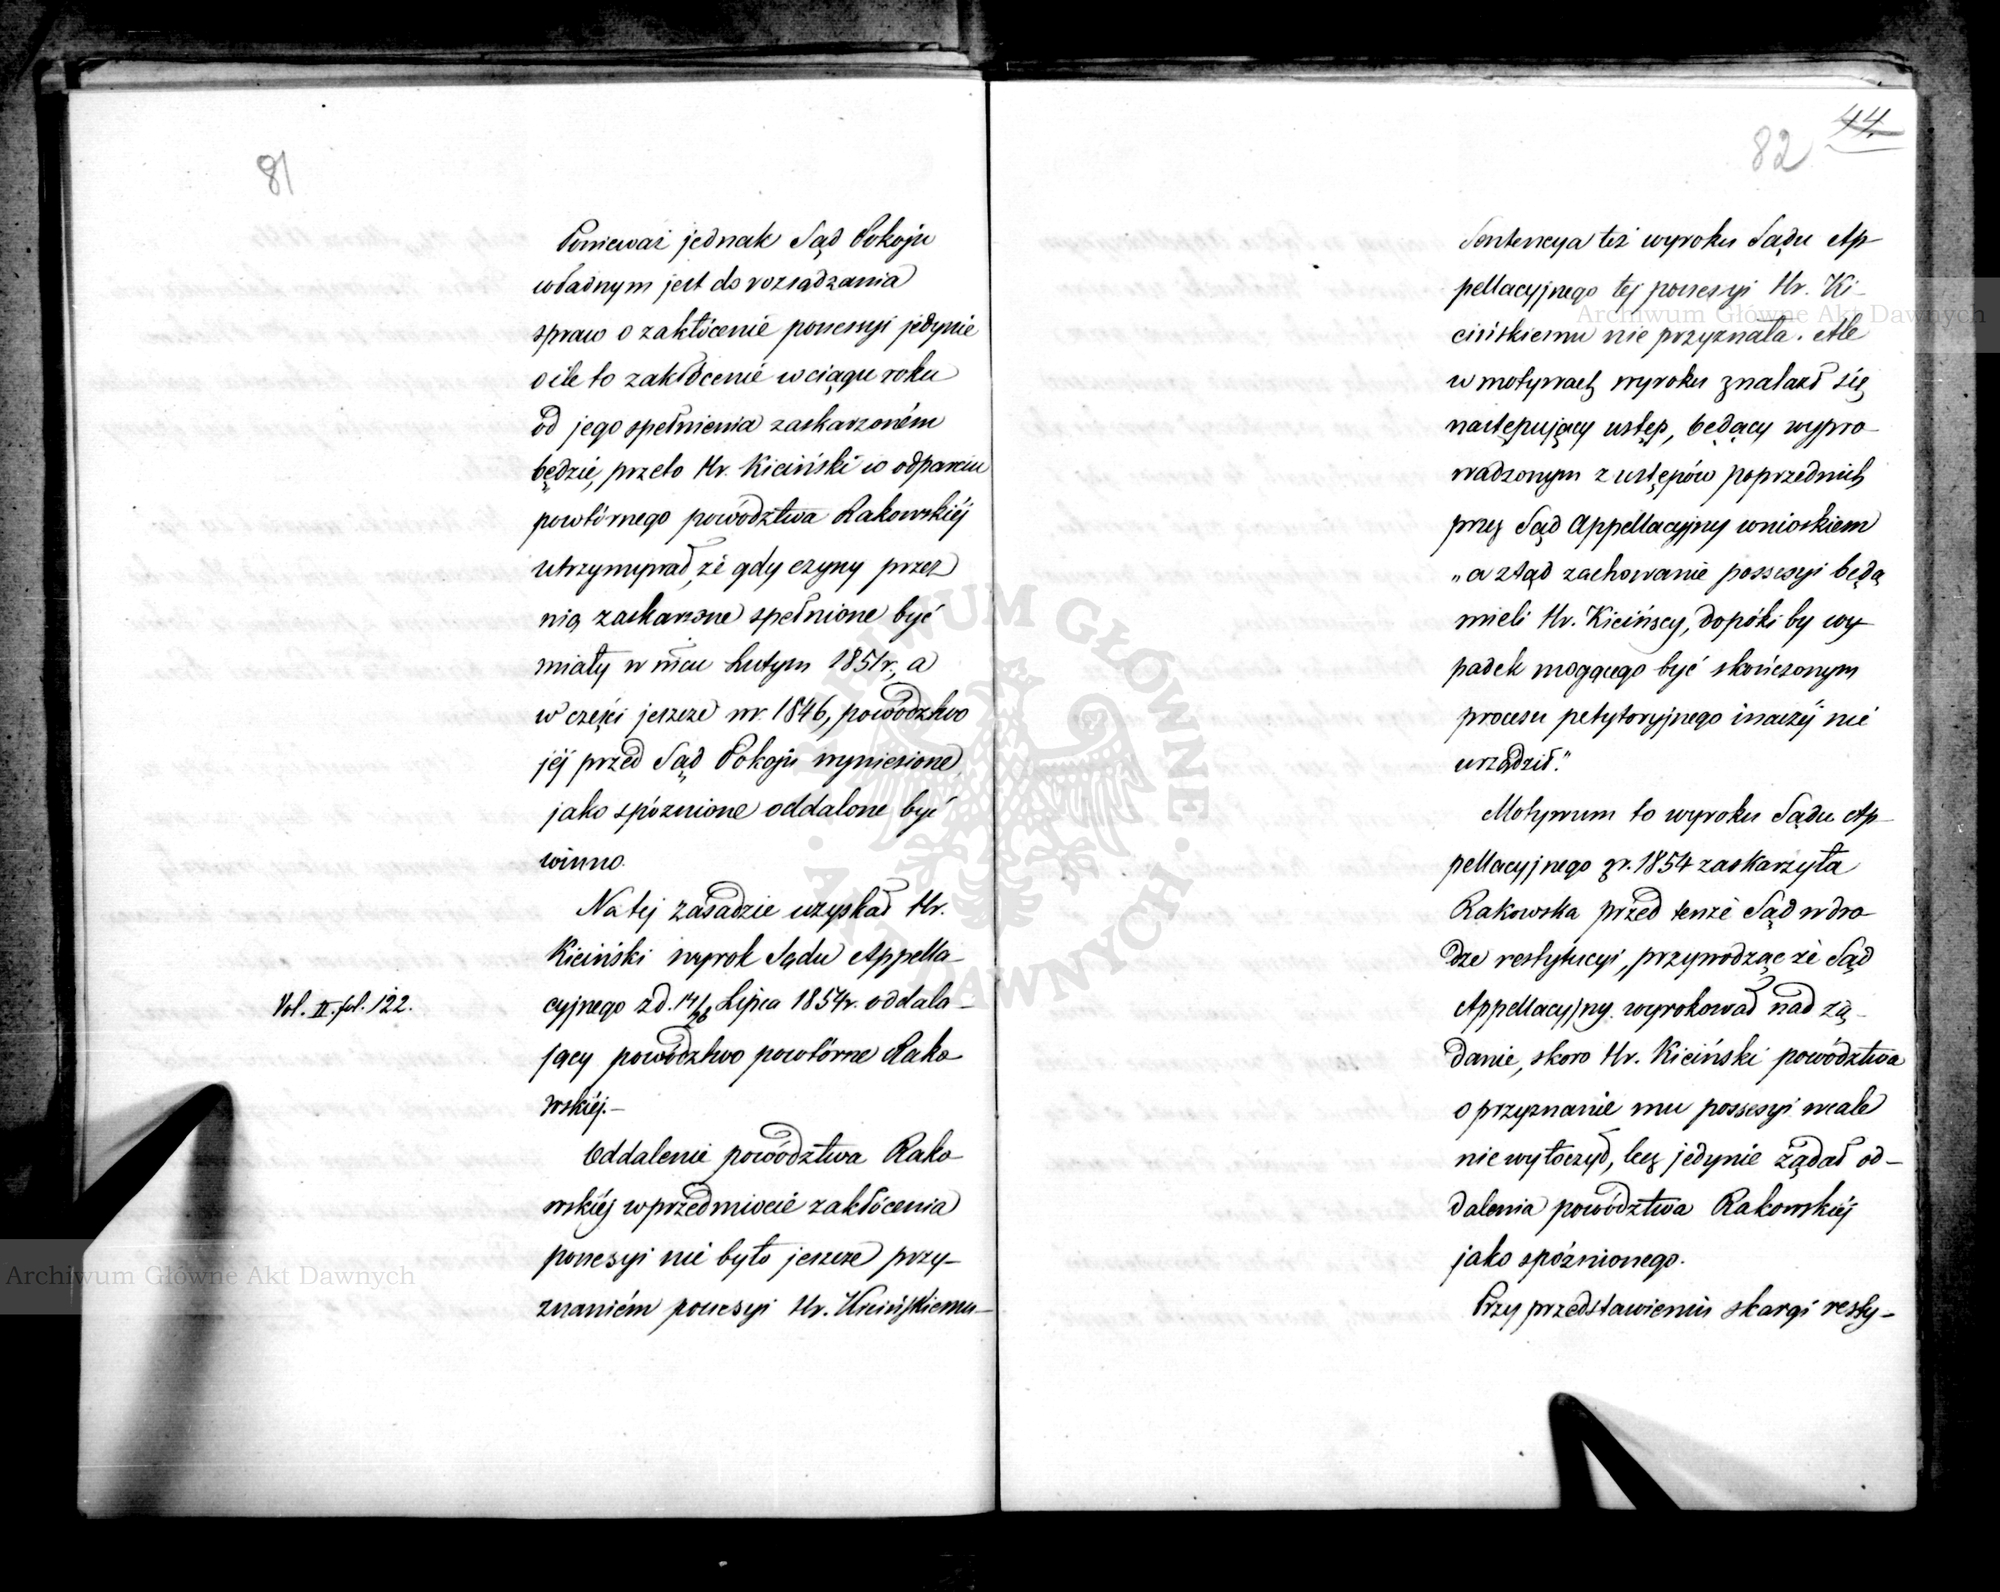 81
Ponieważ jednak Sąd Pokoju
władnym jest do rozsądzania
spraw o zakłócenie possesyi jedynie
o ile to zakłócenie w ciągu roku
od jego spełnienia zaskarżoném
będzie, przeto Hr. Kiciński w odparciu
powtórnego powództwa Rakowskiéj
utrzymywał, że gdy czyny przez
nią zaskarżone spełnione być
miały w mcu Lutym 1851 r., a
w części jeszcze w r. 1846, powództwo
jéj przed Sąd Pokoju wyniesione,
jako spóznione oddalone być
winno.
Na tej zasadzie uzyskał Hr.
Kiciński wyrok Sądu Appella-
cyjnego z d. 14/26 Lipca 1854 r. oddala-
jący powództwo powtórne Rako-
wskiéj.—
Vol. II. fol. 122.
Oddalenie powództwa Rako-
wskiéj w przedmiocie zakłócenia
possesyi nie było jeszcze przy-
znaniém possesyi Hr. Kicińskiemu—
82
44.
Sentencya też wyroku Sądu Ap-
pellacyjnego tej possesyi Hr. Ki-
cińskiemu nie przyznała. Ale
w motywach wyroku znalazł się
następujący ustęp, będący wypro-
wadzonym z ustępów poprzednich
przez Sąd Appellacyjny wnioskiem
„a ztąd zachowanie possesyi będą
mieli Hr. Kicińscy, dopóki by wy-
padek mogącego być skończonym
procesu petytoryjnego inaczéj nie
urządził."
Motywum to wyroku Sądu Ap-
pellacyjnego z r. 1854 zaskarżyła
Rakowska przed tenże Sąd w dro-
dze restytucyi, przywodząc że Sąd
Appellacyjny wyrokował nad żą-
danie, skoro Hr. Kiciński powództwa
o przyznanie mu possesyi wcale
nie wytoczył, lecz jedynie żądał od-
dalenia powództwa Rakowskiéj
jako spóźnionego.
Przy przedstawieniu skargi resty-
Archiwum Główne Akt Dawnych
Archiwum Główne Akt Dawnych
ARCHIWUM GŁÓWNE
AKT DAWNYCH